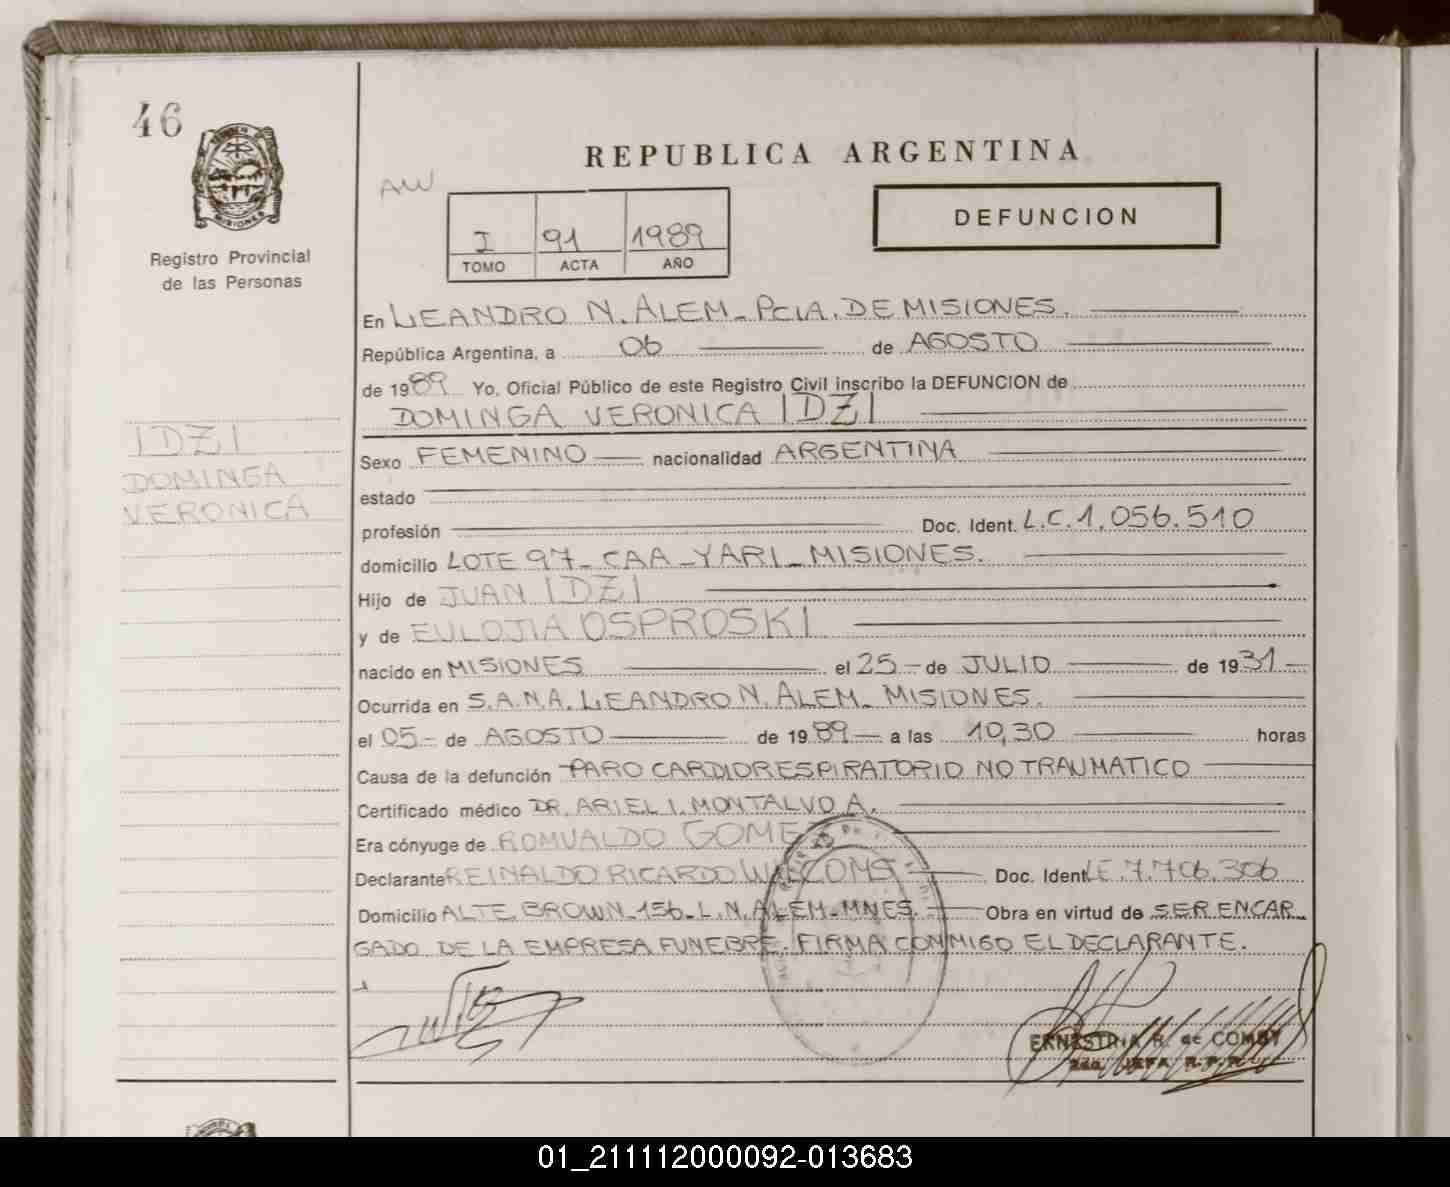 46
MISIONES
Registro Provincial
de las Personas
REPUBLICA ARGENTINA
AW
I 91 1989
TOMO ACTA AÑO
DEFUNCION
En LEANDRO N. ALEM_ PCIA. DE MISIONES.
República Argentina, a 06 de AGOSTO
de 1989 Yo, Oficial Público de este Registro Civil inscribo la DEFUNCION de
DOMINGA VERONICA IDZI
IDZI
DOMINGA
VERONICA
Sexo FEMENINO nacionalidad ARGENTINA
estado
profesión Doc. Ident. L.C.1.056.510
domicilio LOTE 97_ CAA_YARI_MISIONES.
Hijo de JUAN IDZI
y de EULOJIA OSPROSKI
nacido en MISIONES el 25 de JULIO de 1931
Ocurrida en S.A.N.A. LEANDRO N. ALEM_ MISIONES.
el 05 de AGOSTO de 1989 a las 10,30 horas
Causa de la defunción PARO CARDIORESPIRATORIO NO TRAUMATICO
Certificado médico DR. ARIEL I. MONTALVO A.
Era cónyuge de ROMUALDO GOMEZ
Declarante REINALDO RICARDO Doc. Ident. LE.7.706.306
Domicilio ALTE. BROWN_156_L.N.ALEM_MNES. Obra en virtud de SER ENCAR_
GADO DE LA EMPRESA FUNEBRE. FIRMA CONMIGO EL DECLARANTE.
ERNESTINA R. de COMBY
2da. JEFA R.P.P.
01_211112000092-013683